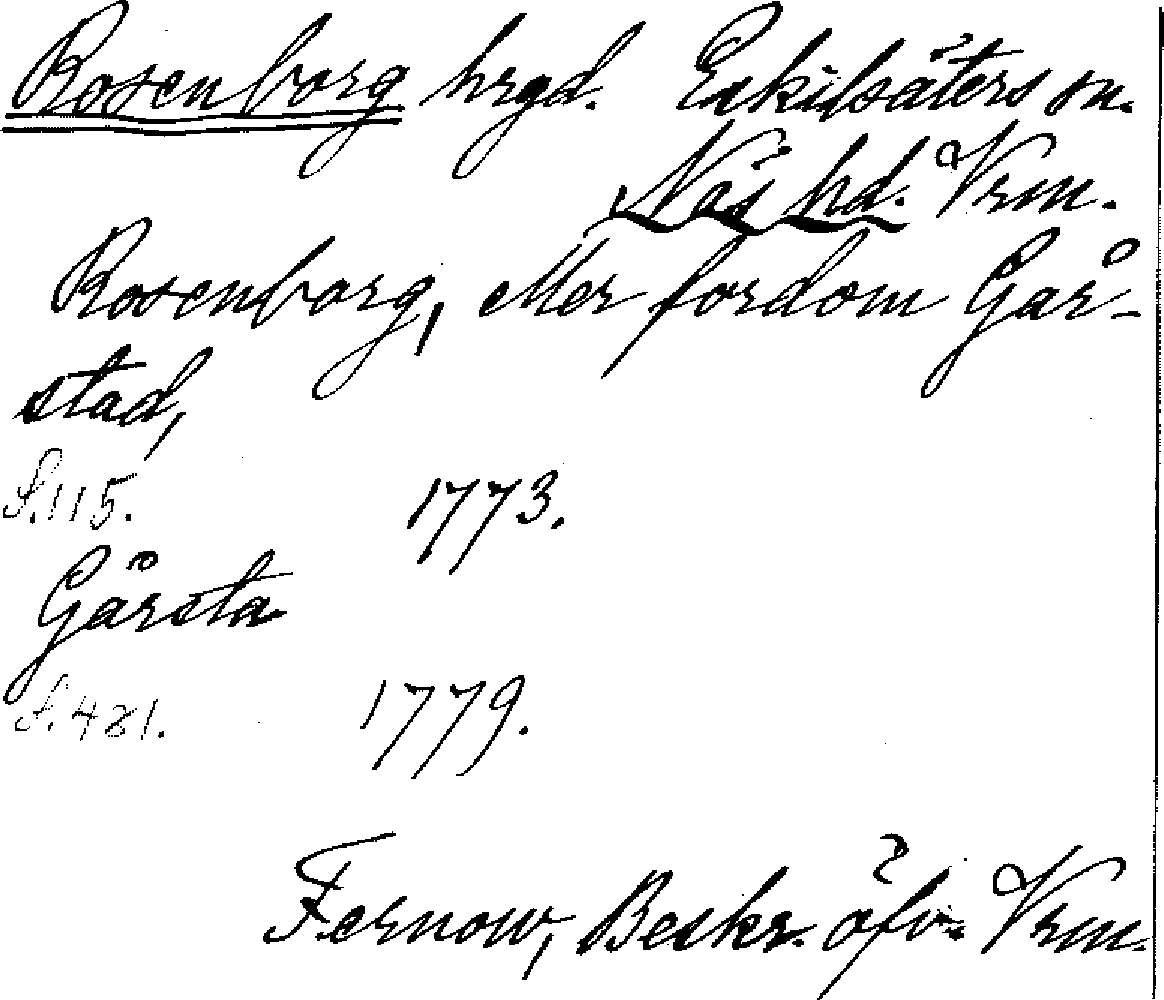 Rosenborg hrgd. Eskilsäters sn.
Näs hd. Vrm.
Rosenborg, eller fordom Går-
stad,
S. 115. 1773.
Gårsta
S. 481. 1779.
Fernow, Beskr. öfv. Vrm.